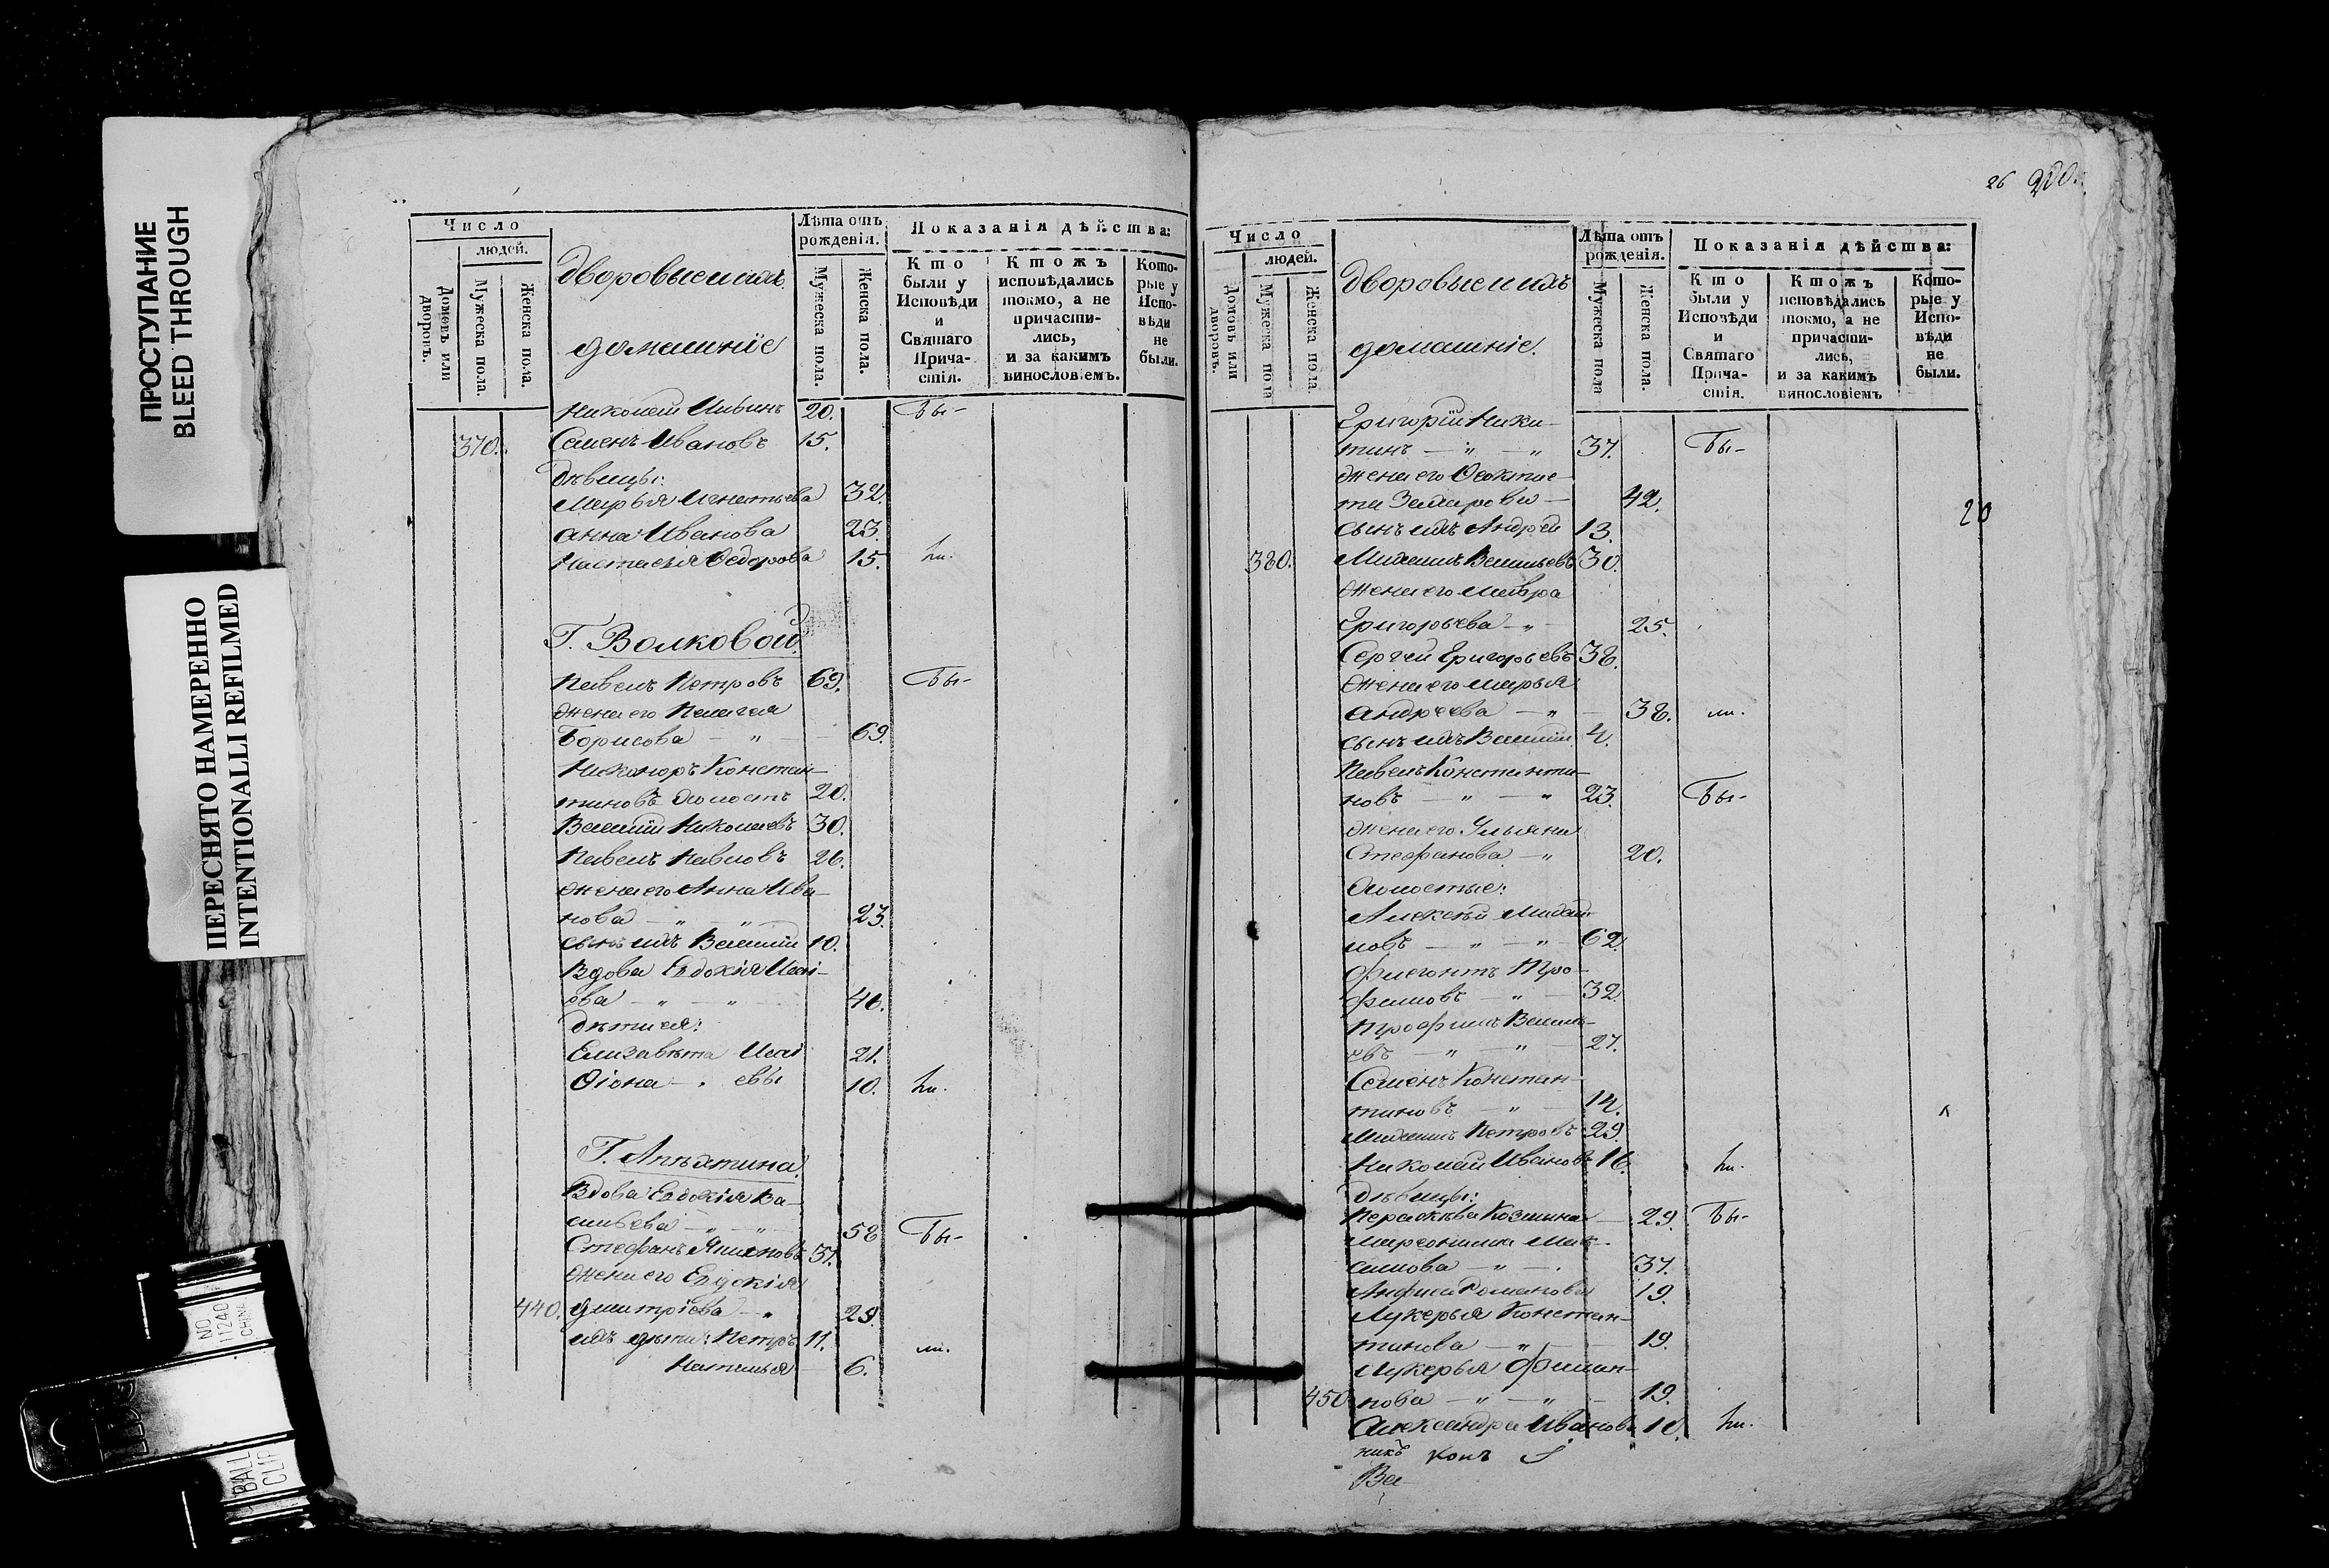 ПРОСТУПАНИЕ
BLEED THROUGH
ПЕРЕСНЯТО НАМЕРЕННО
INTENTIONALLI REFILMED
NO
11240
CHINA
BALL
CLIP
Число
людей.
Домовъ или дворовъ.
Мужеска пола.
Женска пола.
дворовые ихъ
домашніе
Лѣта отъ рожденія.
Мужеска пола.
Женска пола.
Показанія дѣйства:
Кто были у Исповѣди и Святаго Прича-стія.
Ктожъ исповѣдались токмо, а не причасти-лись, и за какимъ винословіемъ.
Кото-рые у Испо-вѣди не были.
Николай 20. Бы-
370. Семенъ Ивановъ 15.
Дѣвицы:
Марья Игнатьева 32.
Анна Иванова 23.
Настасья Ѳедорова 15. ли.
Г. Волковой
Павелъ Петровъ 69. Бы-
Жена его Пелагея
Борисова — " — 69.
Никаноръ Констан-
тиновъ холостъ 20.
Василій Николаевъ 30.
Павелъ Павловъ 26.
Жена его Анна Ива-
нова — " — " 23.
сынъ ихъ Василій 10.
Вдова Евдокія Исаі-
ова — " — " 46.
дѣти ея:
Елизавета Исаі 21.
Ѳіона — " евы 10. ли.
Г.
Вдова Евдокія Ва-
сильева — " — " 58 Бы-
Стефанъ 37.
Жена его Евдокія
440. Дмитріева — " 29.
ихъ дѣти: Петръ 11. ли.
Наталья 6.
26 200.
Число
людей.
Домовъ или дворовъ.
Мужеска пола
Женска пола.
дворовые ихъ
домашніе.
Лѣта отъ рожденія.
Мужеска пола
Женска пола.
Показанія дѣйства:
Кто были у Исповѣди и Святаго Прича-стія.
Ктожъ исповѣдались токмо, а не причасти-лись, и за какимъ винословіемъ
Кото-рые у Испо-вѣди не были.
Григорій Ники-
тинъ — " — " 37. Бы-
Жена его Ѳеоктис-
та — 42.
20
сынъ ихъ Андрей 13.
380. Михаилъ Васильевъ 30.
Жена его Мавра
Григорьева — " 25.
Сергей Григорьевъ 38.
Жена его Марья
Андреева — " — 38. ли.
сынъ ихъ Василій 4.
Павелъ Константи-
новъ — " — " 23. Бы-
Жена его Ульяна
Стефанова — " 20.
Холостые:
Алексѣй Михай-
ловъ — " — " 62.
Флегонтъ Тро-
фимовъ — " — 32.
Трофимъ Василь-
евъ — " — " — 27.
Семенъ Констан-
тиновъ — " — 14.
Михаилъ Петровъ 29.
Николай Ивановъ 16. ли.
Дѣвицы:
Параскева Козмина — 29. Бы-
Мак-
симова — " — 37.
Анфиса Романова 19.
Лукерья Констан-
тинова — " — 19.
Лукерья Филип-
450. пова — " — " — 19.
Александра Иванова 10. ли.
никъ конъ
Ва